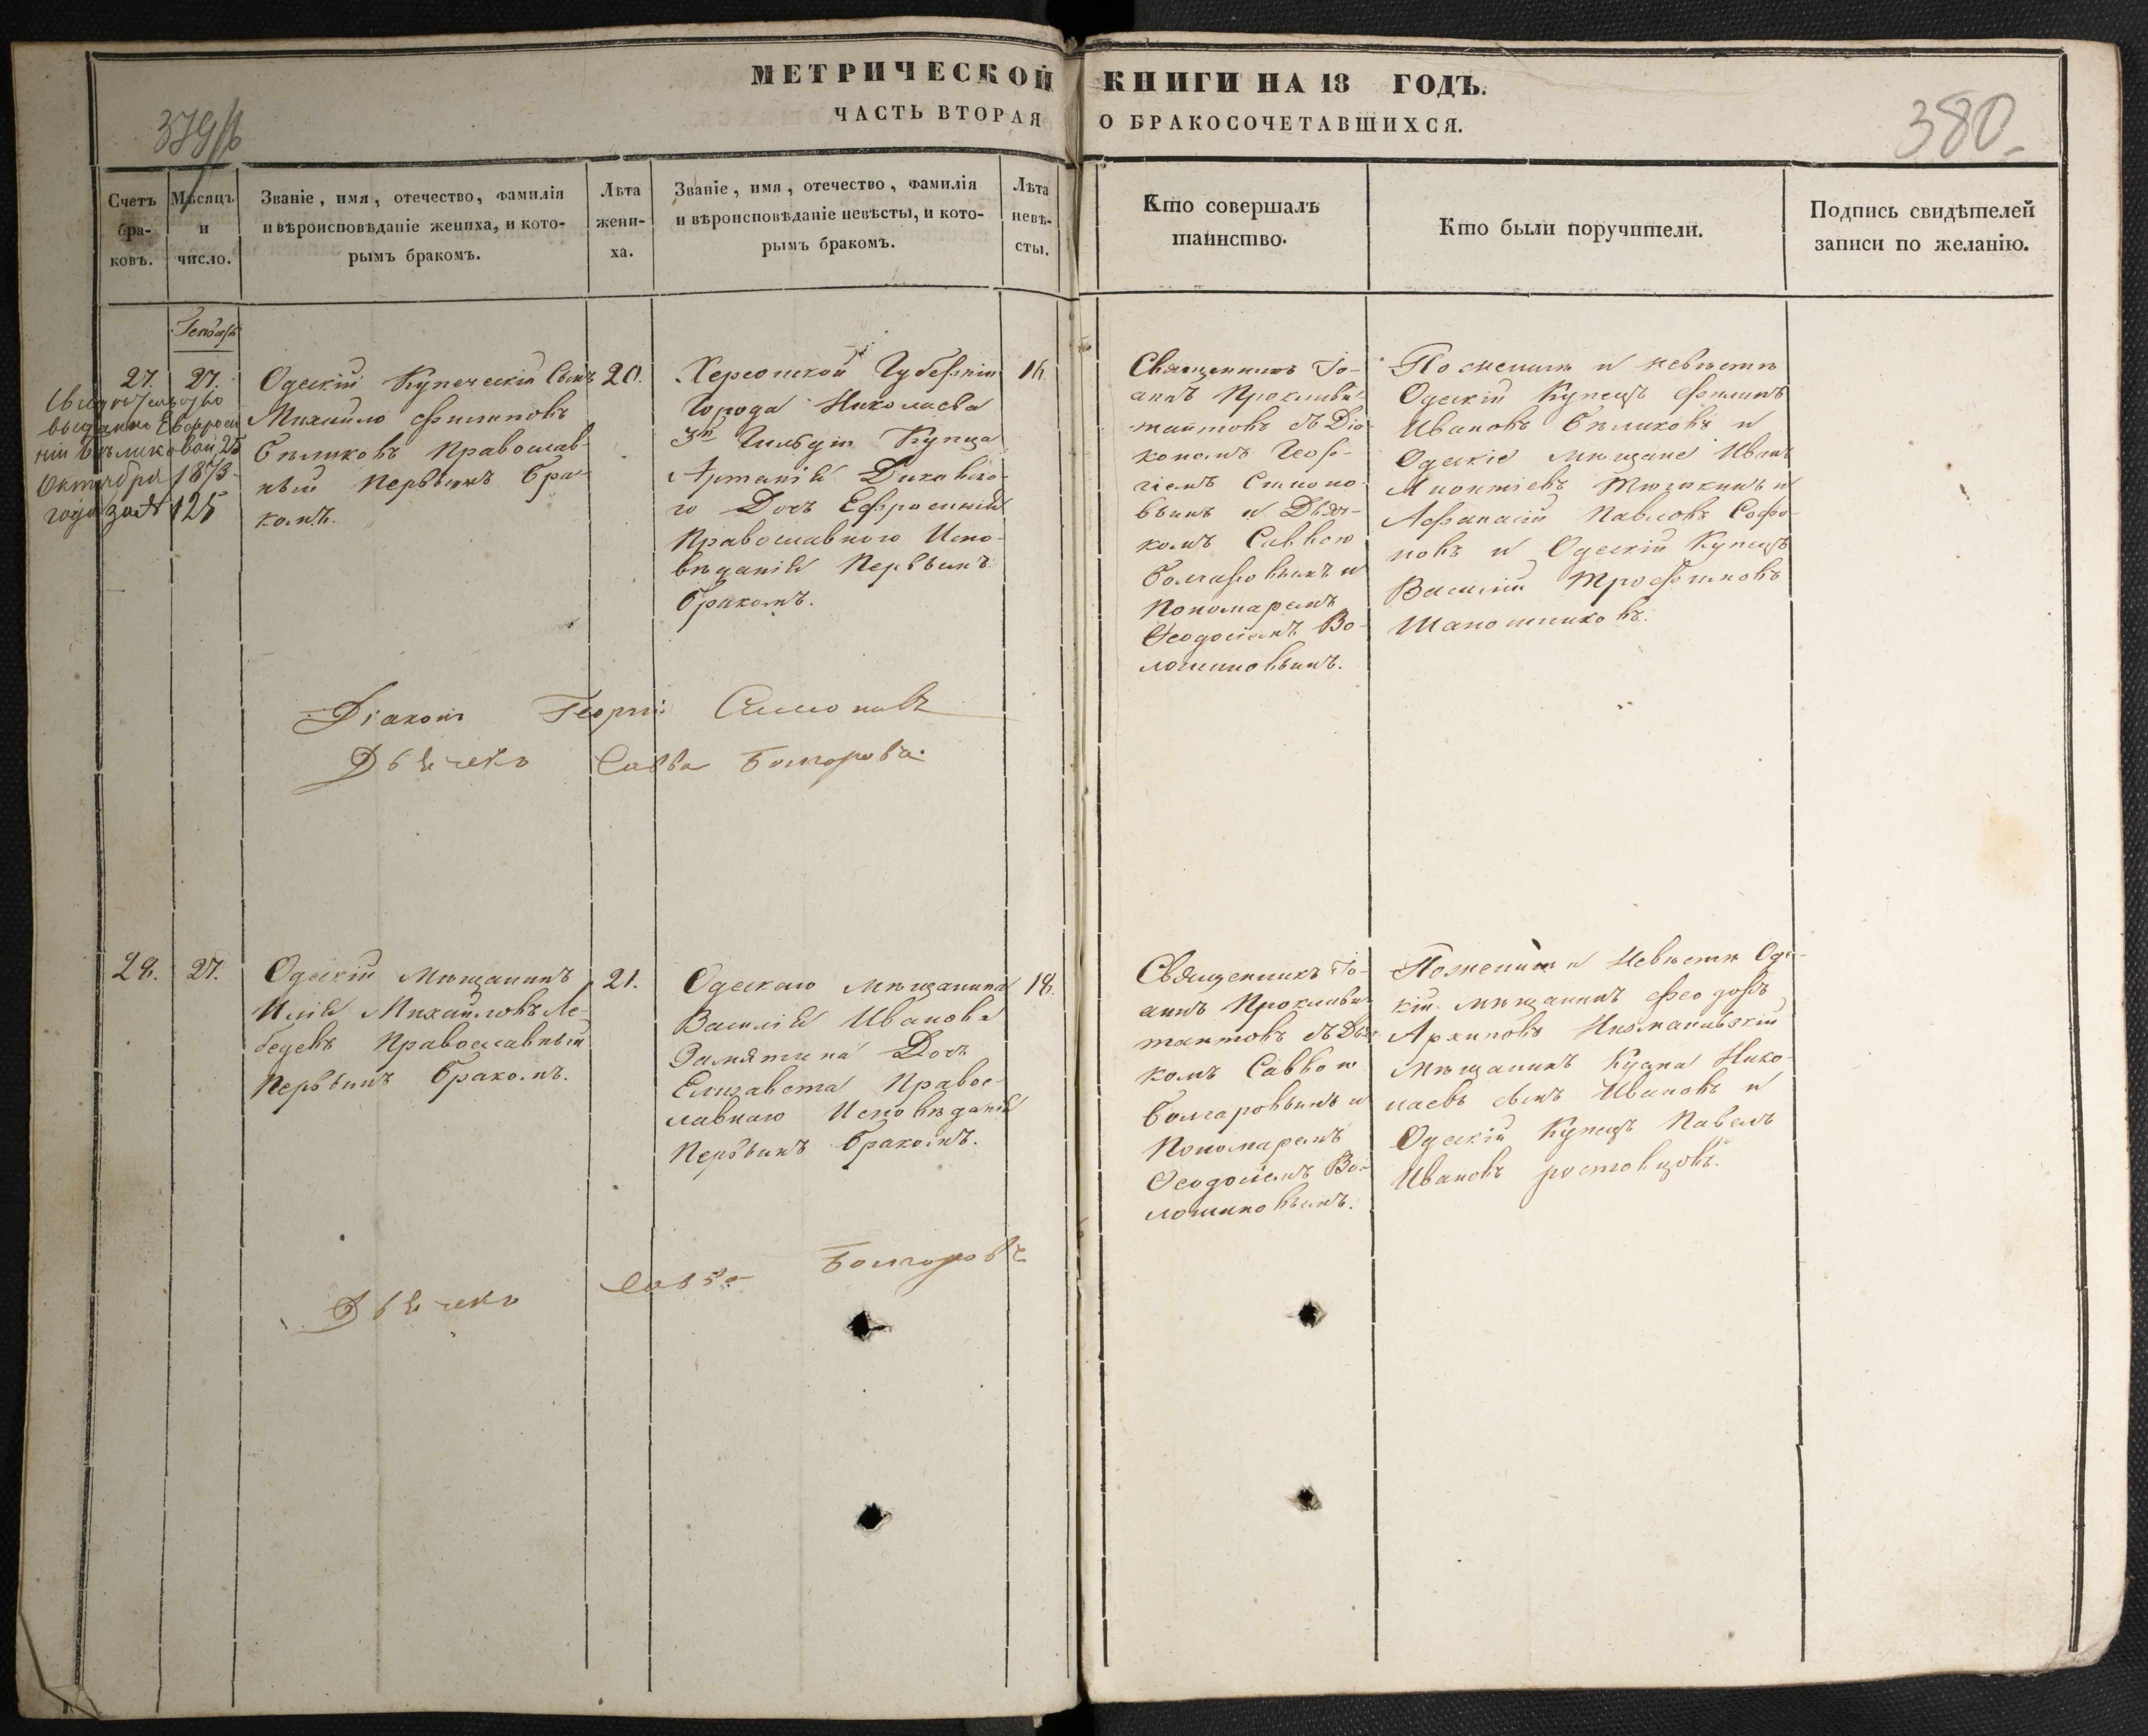 МЕТРИЧЕСКОЙ КНИГИ НА 18 ГОДЪ.
ЧАСТЬ ВТОРАЯ О БРАКОСОЧЕТАВШИХСЯ.
380
Счетъ бра-ковъ.
Мѣсяцъ и число.
Званіе, имя, отечество, фамилія
и вѣроисповѣданіе жениха, и кото-
рымъ бракомъ.
Лѣта
жени-
ха.
Званіе, имя, отечество, фамилія
и вѣроисповѣданіе невѣсты, и кото-
рымъ бракомъ.
Лѣта
невѣ-
сты.
Кто совершалъ
таинство.
Кто были поручители.
Подпись свидѣтелей
записи по желанію.
27.
27.
Свидѣтельство
выдано Евфроси
ніи Бѣликовой 25
Октября 1873
года за № 125
Одескій Купеческій Сынъ
Михаило Филиповъ
Бѣликовъ Православ-
ный Первымъ Бра-
комъ.
20.
Херсонской Губерніи
Города Николаева
3й Гильдіи Купца
Дочь Ефросинія
Православного Испо-
вѣданія Первымъ
бракомъ.
16.
Священникъ Іо-
аннъ
съ Діа-
кономъ Геор-
гіемъ
вымъ и Дьяч-
комъ Саввою
Болгаровымъ и
Пономаремъ
Ѳеодосіемъ Во-
лошиновымъ.
По женихѣ и невѣстѣ
Одескій Купецъ Филипъ
Ивановъ Бѣликовъ и
Одескіе Мѣщане Иванъ
Афанасій Павловъ Софро-
новъ и Одескій Купецъ
Василій Трофимовъ
Шапошниковъ.
Діаконъ Георгій
Дьячекъ Савва Болгаровъ
28.
27.
Одескій Мѣщанинъ
Илія Михайловъ Ле-
бедевъ Православный
Первымъ бракомъ.
21.
Одескаго Мѣщанина
Василія Иванова
Замятина Дочь
Елизавета Правос-
лавнаго Исповѣданія
Первымъ бракомъ.
18.
Священникъ Іо-
аннъ
съ Дьяч
комъ Саввою
Болгаровымъ и
Пономаремъ
Ѳеодосіемъ Во-
лошиновымъ.
По женихѣ и Невѣстѣ Одес-
кій мѣщанинъ Феодоръ
Архиповъ
Мѣщанинъ Нико-
лаевъ сынъ Ивановъ и
Одескій Купецъ Павелъ
Ивановъ ростовцовъ.
Дьячекъ Савва Болгаровъ